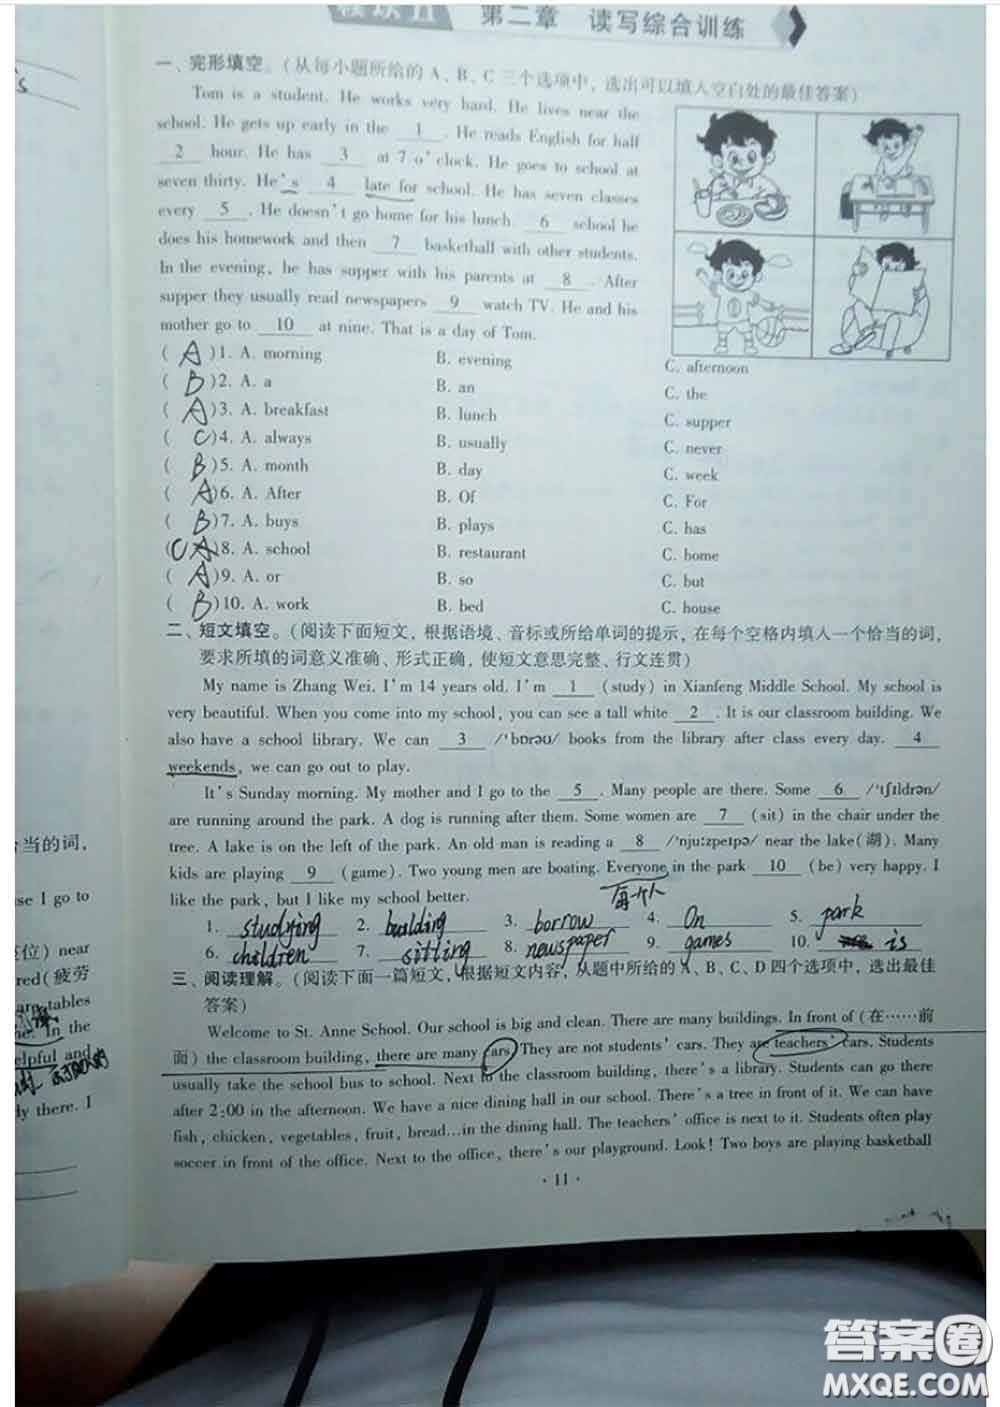 第二章 读写综合训练
一、完形填空。(从每小题所给的 A、B、C 三个选项中，选出可以填入空白处的最佳答案)
Tom is a student. He works very hard. He lives near the
school. He gets up early in the 1 . He reads English for half
2 hour. He has 3 at 7 o'clock. He goes to school at
seven thirty. He's 4 late for school. He has seven classes
every 5 . He doesn't go home for his lunch. 6 school he
does his homework and then 7 basketball with other students.
In the evening, he has supper with his parents at 8 . After
supper they usually read newspapers 9 watch TV. He and his
mother go to 10 at nine. That is a day of Tom.
( A )1. A. morning B. evening C. afternoon
( B )2. A. a B. an C. the
( A )3. A. breakfast B. lunch C. supper
( C )4. A. always B. usually C. never
( B )5. A. month B. day C. week
( A )6. A. After B. Of C. For
( B )7. A. buys B. plays C. has
( C A )8. A. school B. restaurant C. home
( A )9. A. or B. so C. but
( B )10. A. work B. bed C. house
二、短文填空。(阅读下面短文，根据语境、音标或所给单词的提示，在每个空格内填入一个恰当的词，
要求所填的词意义准确、形式正确，使短文意思完整、行文连贯)
My name is Zhang Wei. I'm 14 years old. I'm 1 (study) in Xianfeng Middle School. My school is
very beautiful. When you come into my school, you can see a tall white 2 . It is our classroom building. We
also have a school library. We can 3 /'bɒrəʊ/ books from the library after class every day. 4
weekends, we can go out to play.
It's Sunday morning. My mother and I go to the 5 . Many people are there. Some 6 /'tʃɪldrən/
are running around the park. A dog is running after them. Some women are 7 (sit) in the chair under the
tree. A lake is on the left of the park. An old man is reading a 8 /'nju:zpeɪpə/ near the lake(湖). Many
kids are playing 9 (game). Two young men are boating. Everyone in the park 10 (be) very happy. I
like the park, but I like my school better.
每一个人
1. studying 2. building 3. borrow 4. On 5. park
6. children 7. sitting 8. newspaper 9. games 10. is
三、阅读理解。(阅读下面一篇短文，根据短文内容，从题中所给的 A、B、C、D 四个选项中，选出最佳
答案)
Welcome to St. Anne School. Our school is big and clean. There are many buildings. In front of (在……前
面) the classroom building, there are many cars. They are not students' cars. They are teachers' cars. Students
usually take the school bus to school. Next to the classroom building, there's a library. Students can go there
after 2:00 in the afternoon. We have a nice dining hall in our school. There's a tree in front of it. We can have
fish, chicken, vegetables, fruit, bread…in the dining hall. The teachers' office is next to it. Students often play
soccer in front of the office. Next to the office, there's our playground. Look! Two boys are playing basketball
· 11 ·
当的词,
se I go to
位) near
red(疲劳
are tables
me. In the
elpful and
ly there. I
答案圈
MXQE.COM